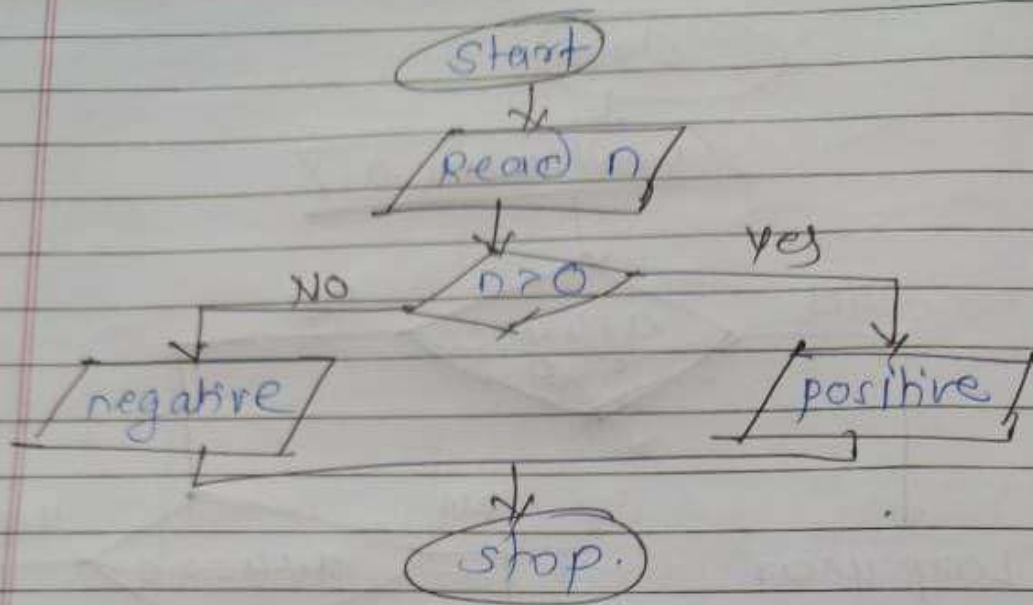 Start
Read n
n>0
NO
Yes
negative
positive
Stop.